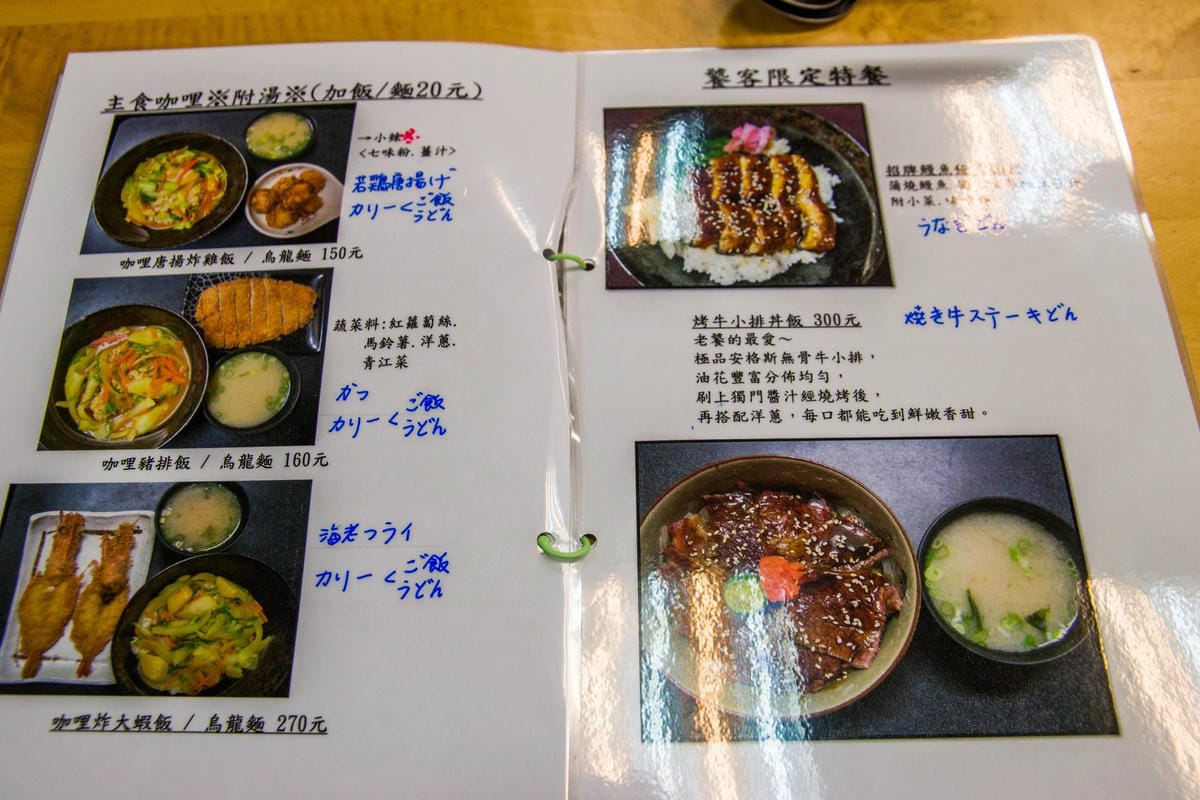 主食咖哩※附湯※(加飯/麵20元)
→小辣
<七味粉.薑汁>
若鶏唐揚げ
カリー<ご飯
うどん
咖哩唐揚炸雞飯 / 烏龍麵 150元
蔬菜料:紅蘿蔔絲.
馬鈴薯.洋蔥.
青江菜
かつ
カリー<ご飯
うどん
咖哩豬排飯 / 烏龍麵 160元
海老フライ
カリー<ご飯
うどん
咖哩炸大蝦飯 / 烏龍麵 270元
饕客限定特餐
招牌鰻魚
蒲燒鰻魚
附小菜.
うなぎどん
烤牛小排丼飯 300元
焼き牛ステーキどん
老饕的最愛～
極品安格斯無骨牛小排，
油花豐富分佈均勻，
刷上獨門醬汁經燒烤後，
再搭配洋蔥，每口都能吃到鮮嫩香甜。